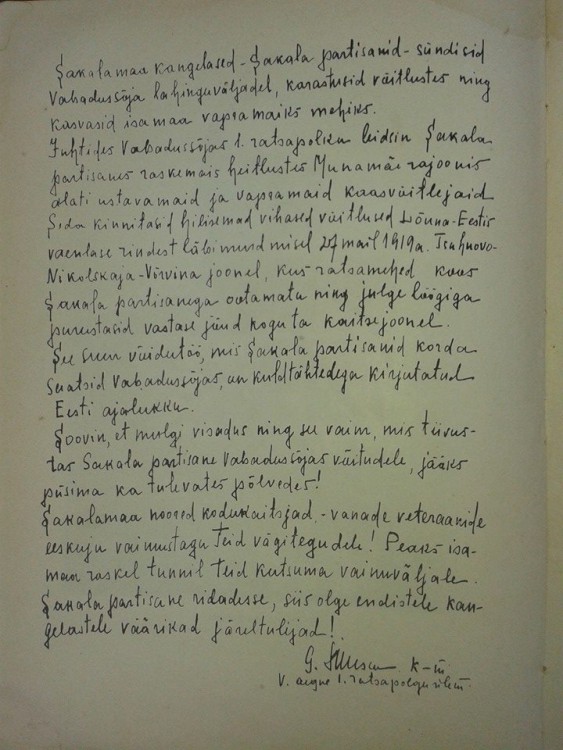 Sakalamaa kangelased - Sakala partisanid - sündisid
Vabadussõja lahinguväljadel, karastusid võitlustes ning
kasvasid isamaa vapramaiks mehiks.
Juhtides Vabadussõjas 1. ratsapolku leidsin Sakala
partisanes raskemais heitlustes Munamäe rajoonis
alati ustavamaid ja vapramaid kaasvõitlejaid
Seda kinnitasid hilisemad vihased võitlused Lõuna-Eestis
vaenlase rindest läbimurdmisel 27 mail 1919a. Tsuhnovo-
Nikolskaja-Virvina joonel, kus ratsamehed koos
Sakala partisanega ootamatu ning julge löögiga
purustasid vastase jõud kogu ta kaitsejoonel.
See suur võidutöö, mis Sakala partisanid korda
saatsid Vabadussõjas, on kuldtähtedega kirjutatud
Eesti ajalukku.
Soovin, et mulgi visadus ning see vaim, mis tiivus-
tas Sakala partisane Vabadussõjas võitudele, jääks
püsima ka tulevates põlvedes!
Sakalamaa noored kodukaitsjad, - vanade veteraanide
eeskuju vaimustagu Teid vägitegudele! Peaks isa-
maa raskel tunnil Teid kutsuma vainuväljale
Sakala partisane ridadesse, siis olge endistele kan-
gelastele väärikad järeltulijad!
G. K-m
V. aegne 1. ratsapolgu ülem.